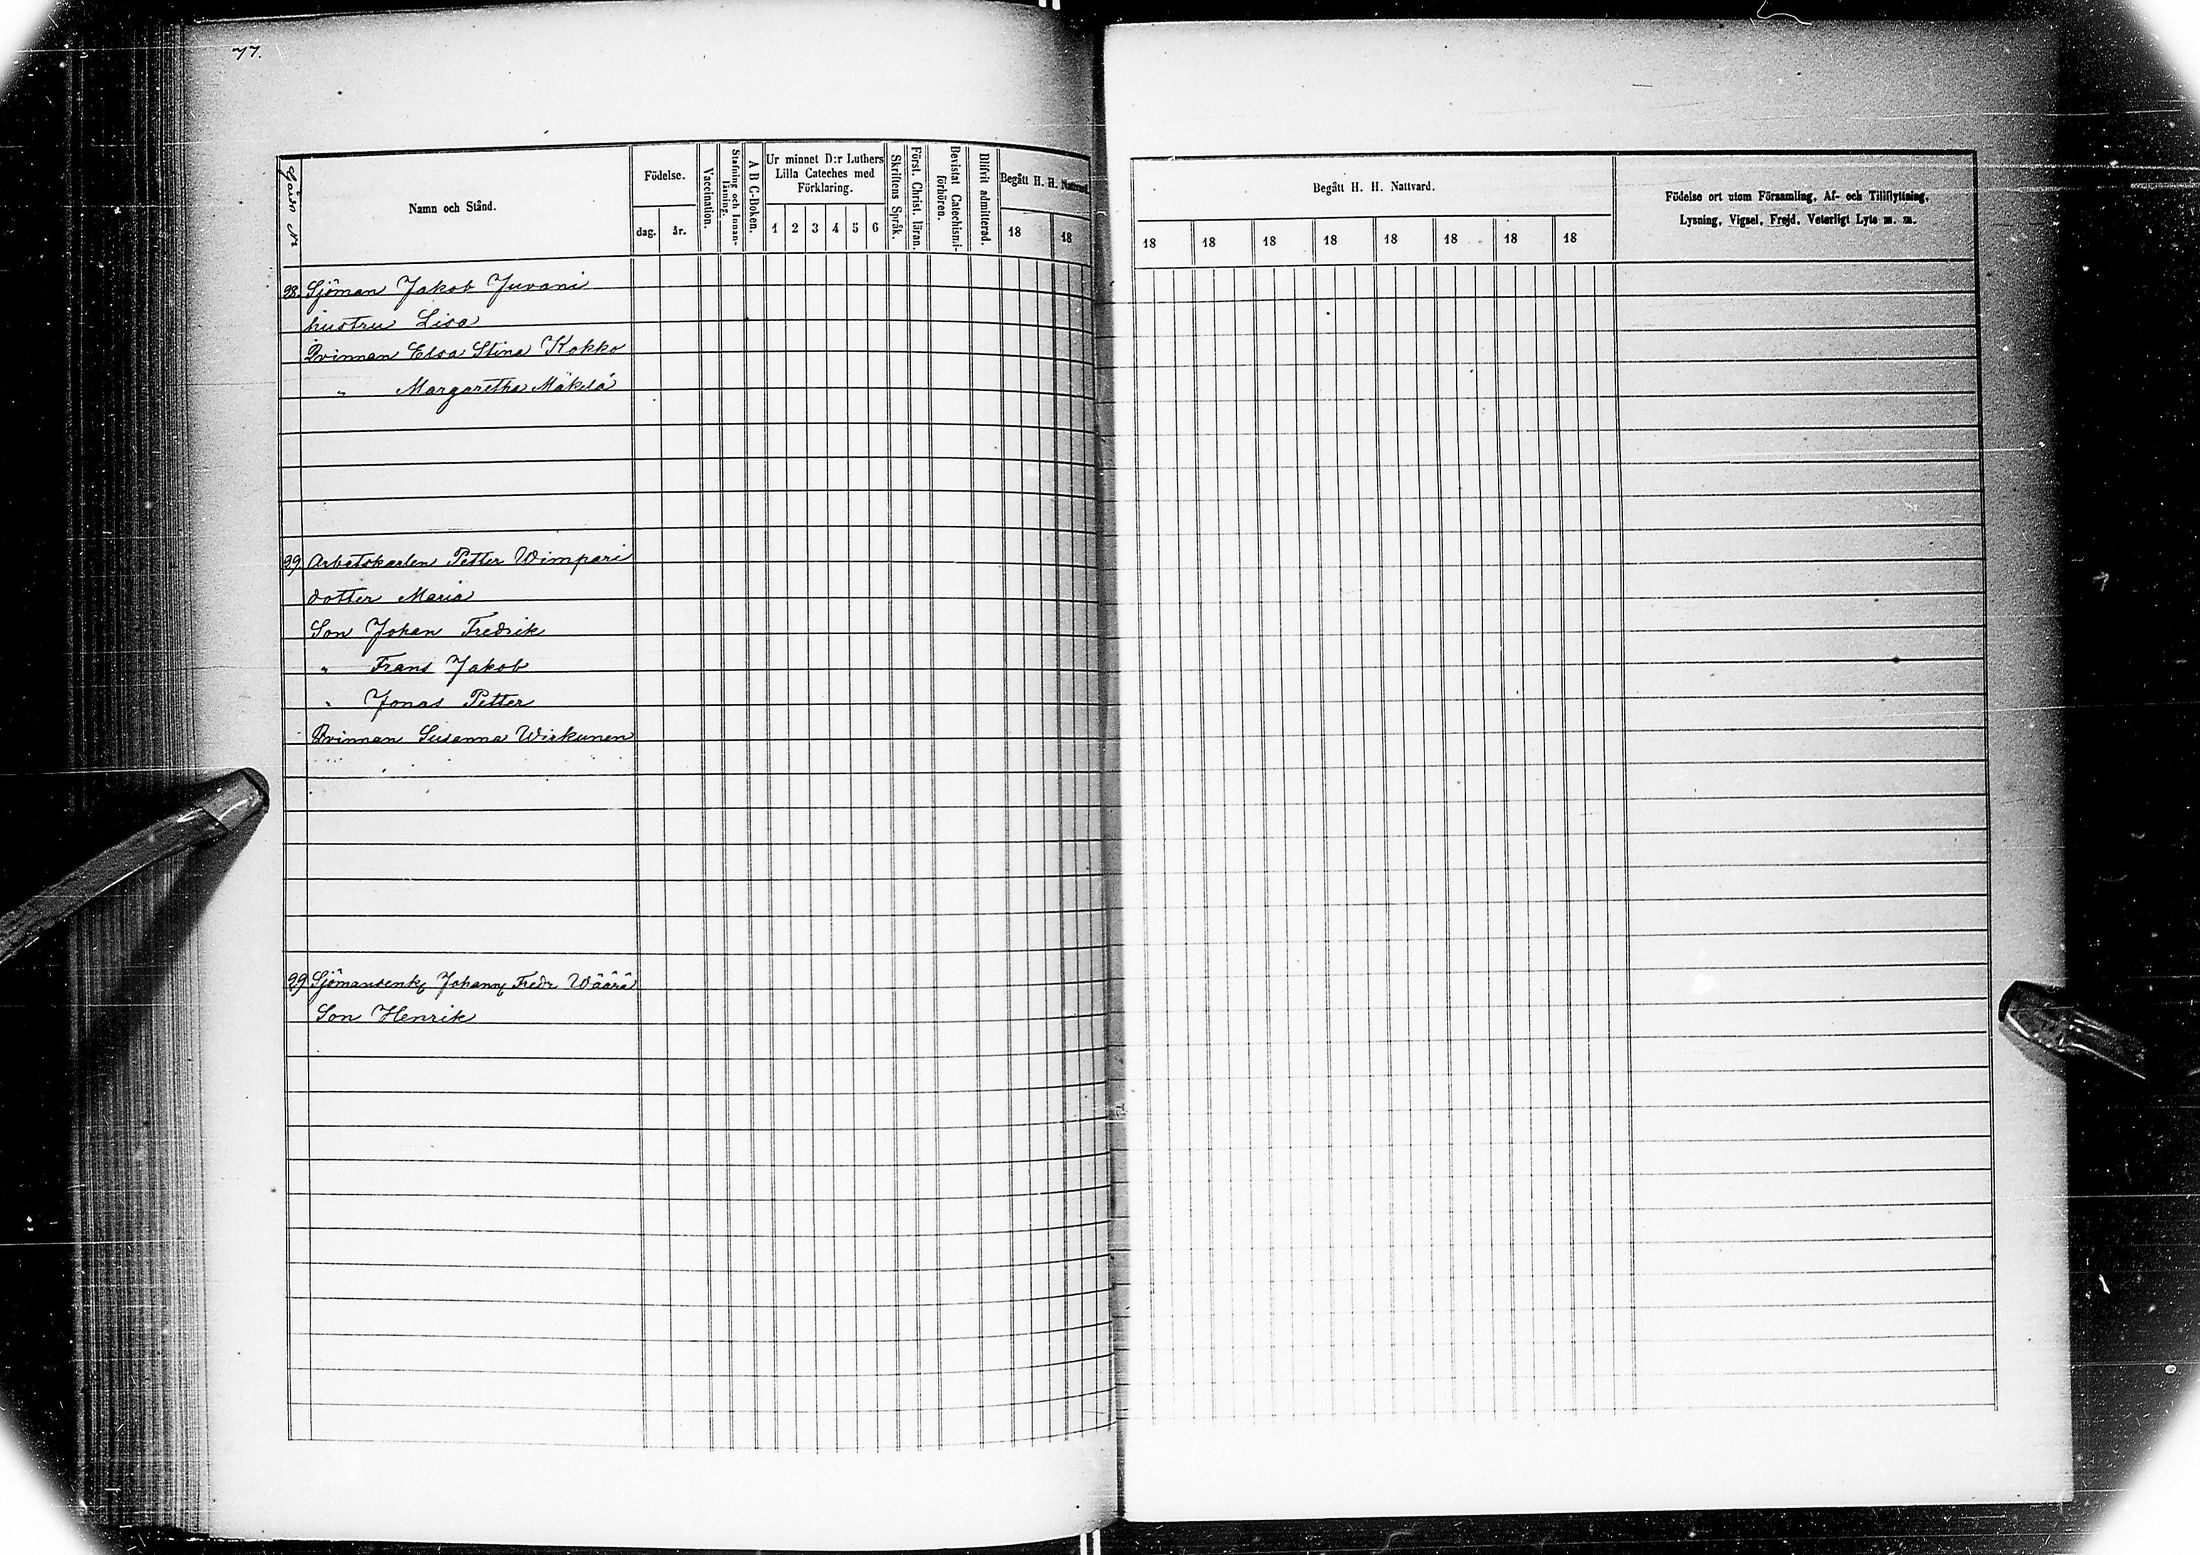 77.
Gårds Nr
Namn och Stånd.
Födelse.
dag. år.
Vaccination.
Stafning och Innan-
läsning.
A B C-Boken.
Ur minnet D:r Luthers
Lilla Cateches med
Förklaring.
1 2 3 4 5 6
Skriftens Språk.
Först. Christ. läran.
Bevistat Catechismi-
förhören.
Blifvit admitterad.
Begått H. H. Nattvard.
18 18
Begått H. H. Nattvard.
18 18 18 18 18 18 18 18
Födelse ort utom Församling, Af- och Tillflyttning,
Lysning, Vigsel, Frejd, Veterligt Lyte m. m.
98. Sjöman Jakob Juvani
hustru Lisa
Qvinnan Elsa Stina Kokko
" Margaretha Mäkelä
99. Arbetskarlen Petter Wimpari
dotter Maria
Son Johan Fredrik
" Frans Jakob
" Jonas Petter
Qvinnan Susanna Wirkunen
99 Sjömansenk Johann Fredr Wäärä
Son Henrik